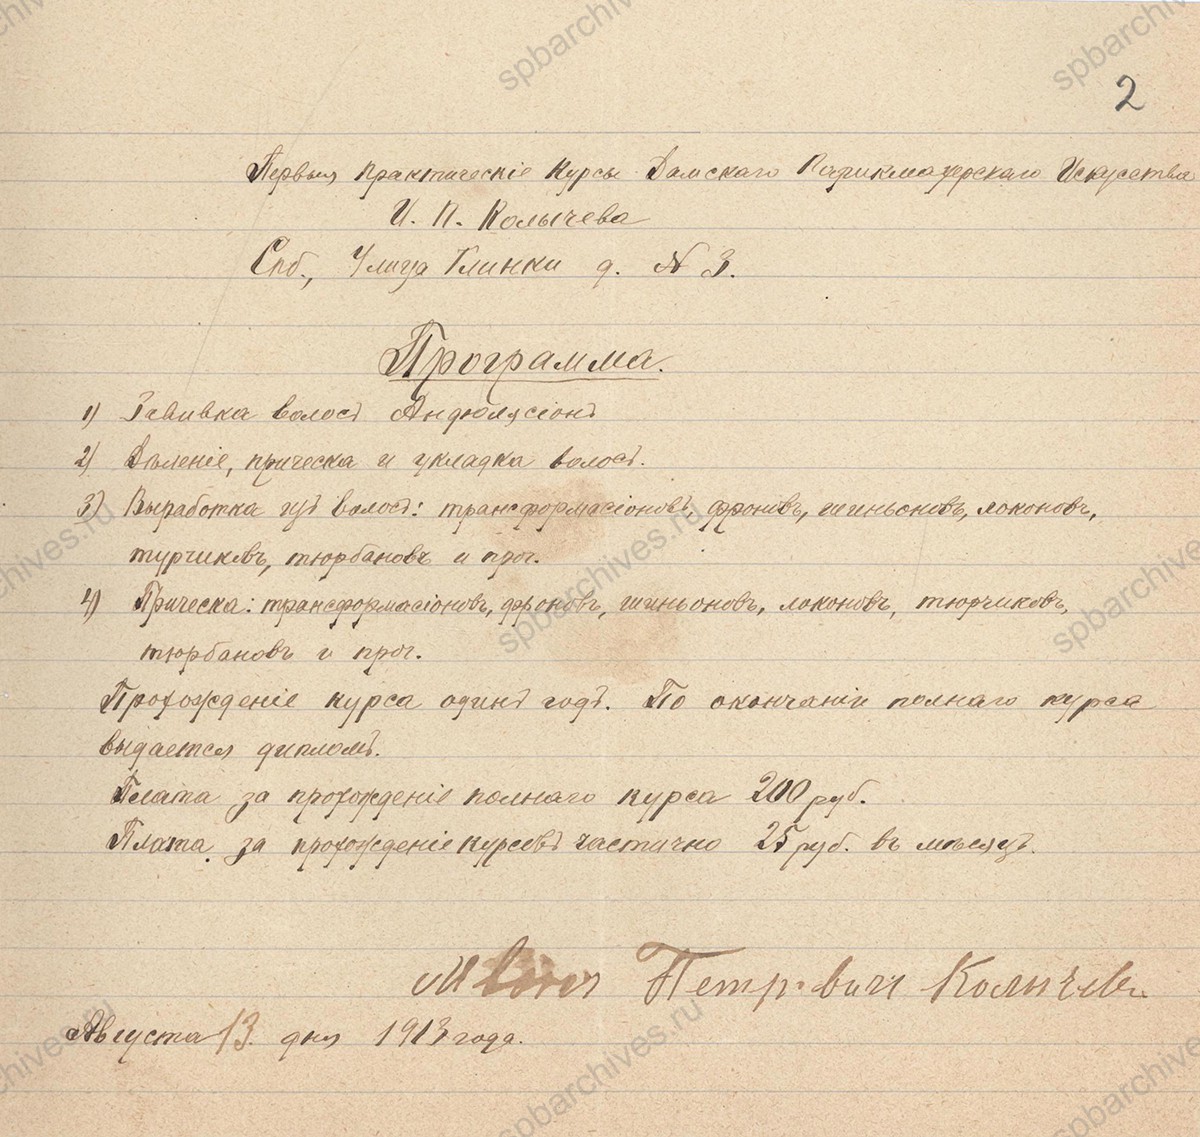 2
Первыя практическіе курсы Дамскаго Парикмахерскаго Искусства
И. П. Колычева
Спб., Улица Глинки д. № 3.
Программа.
1) Завивка волосъ Андюлясіонъ
2) Дѣленіе, прическа и укладка волосъ.
3) Выработка изъ волосъ: трансформасіоновъ, фроновъ, шиньоновъ, локоновъ,
турчиковъ, тюрбановъ и проч.
4) Прическа: трансформасіоновъ, фроновъ, шиньоновъ, локоновъ, тюрчиковъ,
тюрбановъ и проч.
Прохожденіе курса одинъ годъ. По окончаніи полнаго курса
выдается дипломъ.
Плата за прохожденіе полнаго курса 200 руб.
Плата за прохожденіе курсовъ частично 25 руб. въ мѣсяцъ.
Иванъ Петровичъ Колычевъ
Августа 13 дня 1913 года.
spbarchives.ru